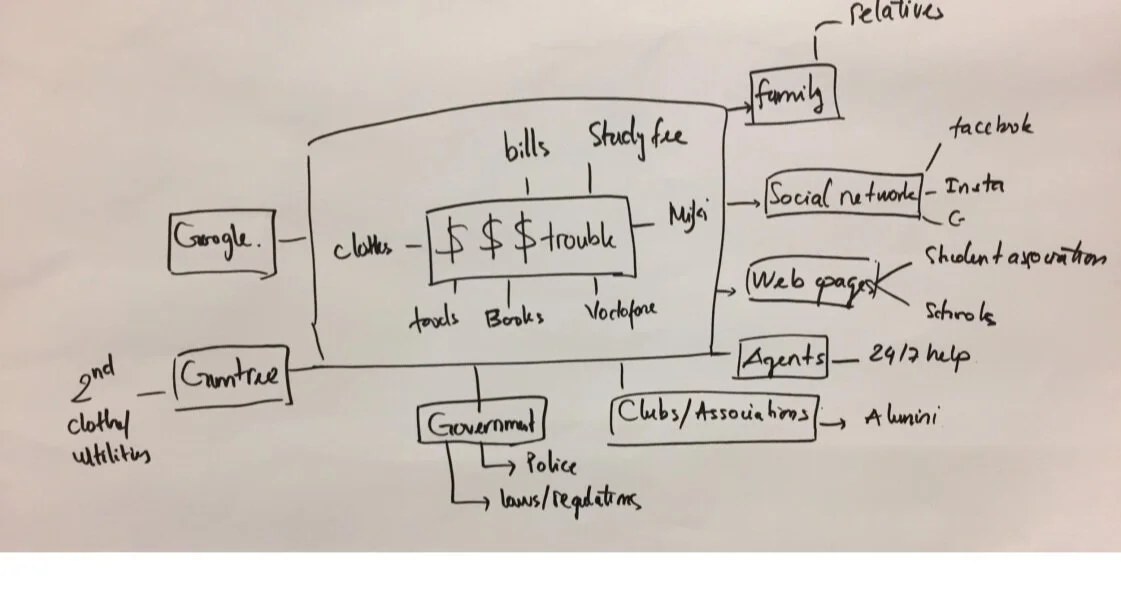 relatives
family
facebook
bills
Study fee
Social network
Insta
G
Google.
clothes
$ $ $ trouble
Myki
Student association
Web pages
Schools
foods
Books
Vodofone
Agents
24/7 help
Gumtree
2nd
clothes/
utilities
Government
Clubs/Associations
Alumini
Police
laws/regulations